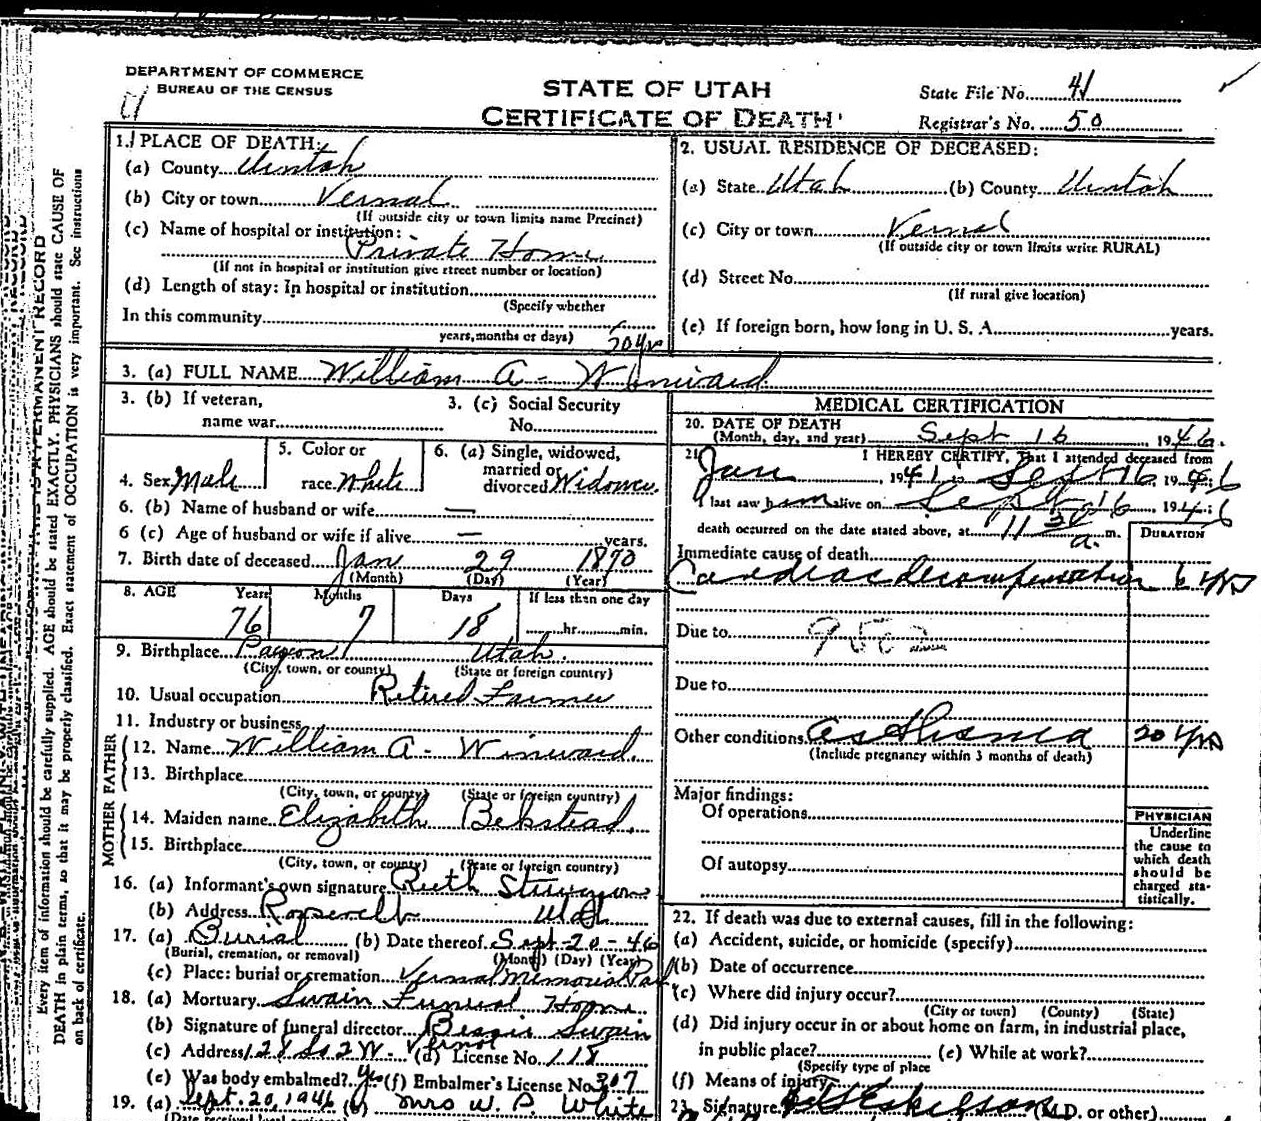 DEPARTMENT OF COMMERCE
BUREAU OF THE CENSUS
STATE OF UTAH
CERTIFICATE OF DEATH
State File No. 41
Registrar's No. 50
1. PLACE OF DEATH:
(a) County Uintah
(b) City or town Vernal
(If outside city or town limits name Precinct)
(c) Name of hospital or institution:
Private Home
(If not in hospital or institution give street number or location)
(d) Length of stay: In hospital or institution
(Specify whether
In this community
years, months or days) 50 yr
2. USUAL RESIDENCE OF DECEASED:
(a) State Utah (b) County Uintah
(c) City or town Vernal
(If outside city or town limits write RURAL)
(d) Street No.
(If rural give location)
(e) If foreign born, how long in U. S. A. years.
3. (a) FULL NAME William A - Winward
3. (b) If veteran,
name war
3. (c) Social Security
No.
4. Sex Male
5. Color or
race White
6. (a) Single, widowed,
married or
divorced Widower
6. (b) Name of husband or wife —
6 (c) Age of husband or wife if alive — years.
7. Birth date of deceased Jan 29 1870
(Month) (Day) (Year)
8. AGE Years Months Days If less than one day
76 7 18 hr. min.
9. Birthplace Payson Utah.
(City, town, or county) (State or foreign country)
10. Usual occupation Retired Farmer
11. Industry or business
FATHER
12. Name William A - Winward.
13. Birthplace
(City, town, or county) (State or foreign country)
MOTHER
14. Maiden name Elizabeth Bekstead.
15. Birthplace
(City, town, or county) (State or foreign country)
16. (a) Informant's own signature Ruth
(b) Address Roosevelt Utah
17. (a) Burial (b) Date thereof Sept-20-46
(Burial, cremation, or removal) (Month) (Day) (Year)
(c) Place: burial or cremation Vernal Memorial Park
18. (a) Mortuary Swain Funeral Home
(b) Signature of funeral director Bessie Swain
(c) Address 128 So 2 W. Vernal (d) License No. 118
(e) Was body embalmed? Yes (f) Embalmer's License No 307
19. (a) Sept. 20, 1946 (b) Mrs W. P. White
MEDICAL CERTIFICATION
20. DATE OF DEATH
(Month, day, and year) Sept 16, 1946.
21. I HEREBY CERTIFY, That I attended deceased from
Jan, 1941 to Sept 16, 1946
I last saw him alive on Sept 16 1946
death occurred on the date stated above, at 11 30 a. m.
DURATION
Immediate cause of death
Cardiac decompensation 6 yrs
Due to
Due to
Other conditions Asthma 20 yrs
(Include pregnancy within 3 months of death)
Major findings:
Of operations
Of autopsy
PHYSICIAN
Underline
the cause to
which death
should be
charged sta-
tistically.
22. If death was due to external causes, fill in the following:
(a) Accident, suicide, or homicide (specify)
(b) Date of occurrence
(c) Where did injury occur?
(City or town) (County) (State)
(d) Did injury occur in or about home on farm, in industrial place,
in public place? (e) While at work?
(Specify type of place
(f) Means of injury
23. Signature (M.D. or other)
Every item of information should be carefully supplied. AGE should be stated EXACTLY. PHYSICIANS should state CAUSE OF
DEATH in plain terms, so that it may be properly classified. Exact statement of OCCUPATION is very important. See instructions
on back of certificate.